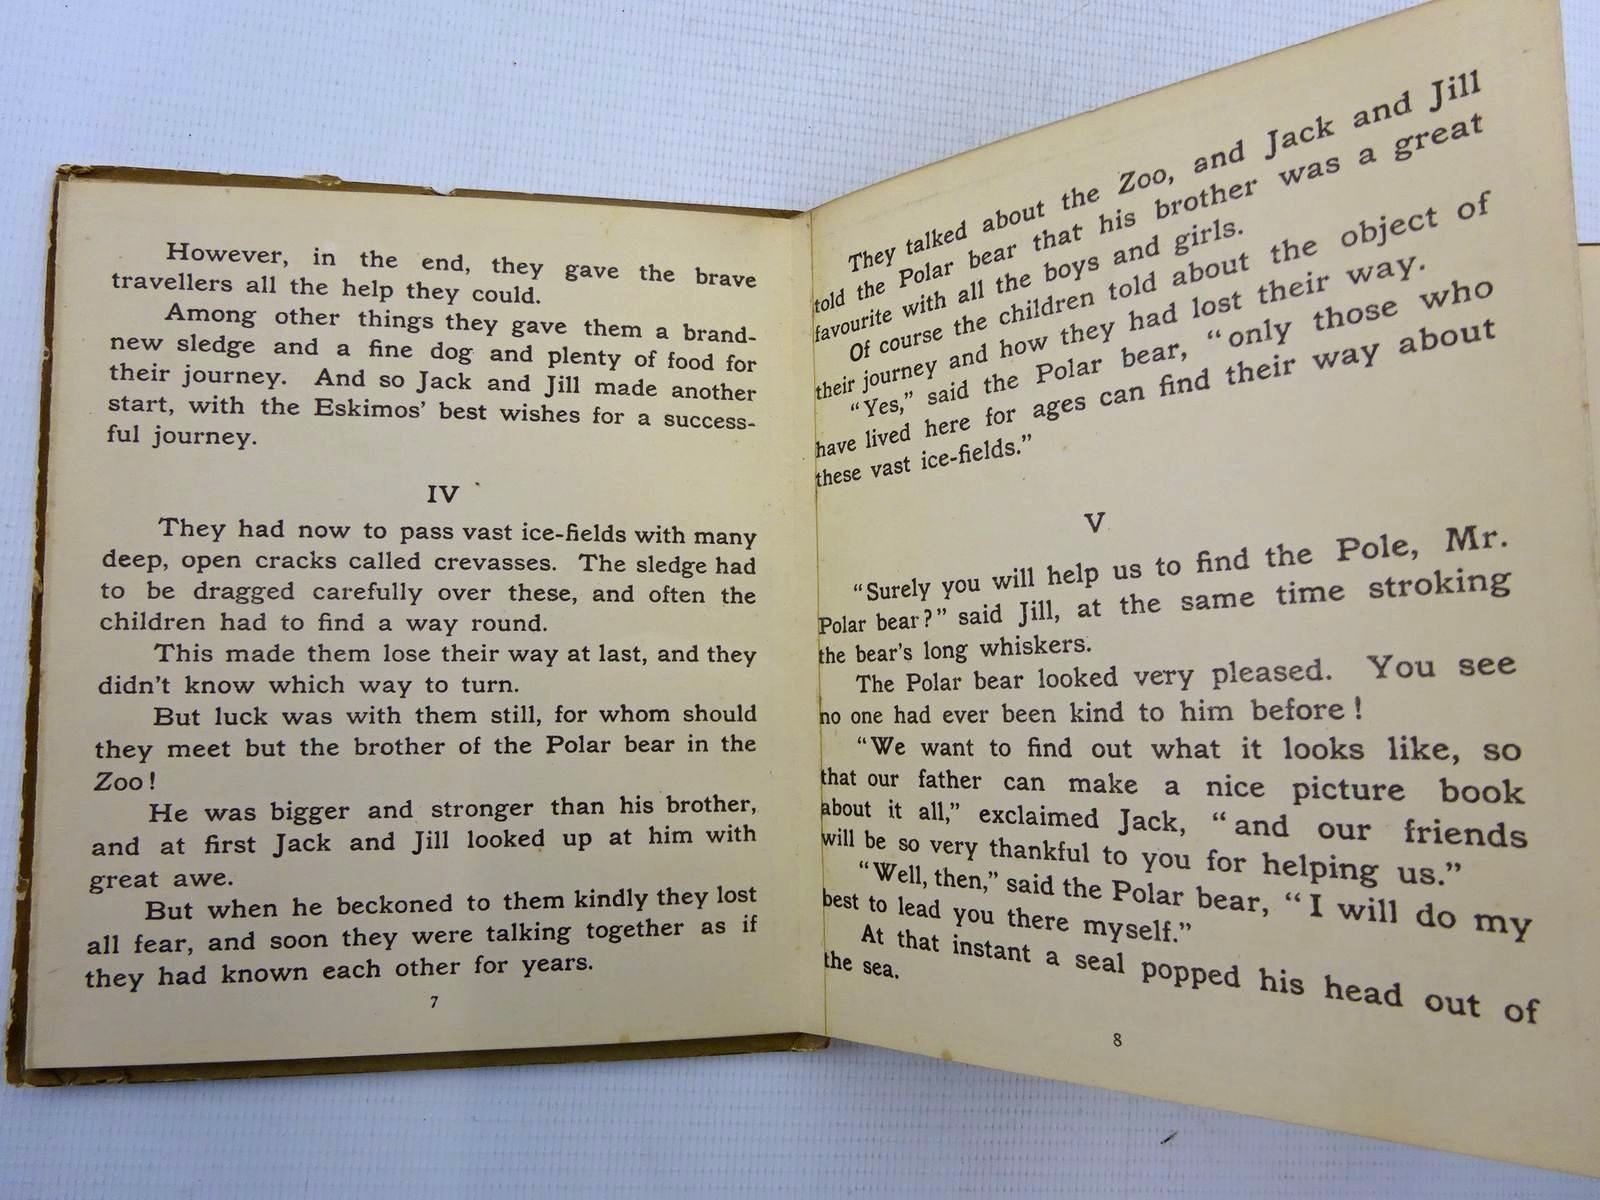 However, in the end, they gave the brave
travellers all the help they could.
Among other things they gave them a brand-
new sledge and a fine dog and plenty of food for
their journey. And so Jack and Jill made another
start, with the Eskimos' best wishes for a success-
ful journey.
IV
They had now to pass vast ice-fields with many
deep, open cracks called crevasses. The sledge had
to be dragged carefully over these, and often the
children had to find a way round.
This made them lose their way at last, and they
didn't know which way to turn.
But luck was with them still, for whom should
they meet but the brother of the Polar bear in the
Zoo!
He was bigger and stronger than his brother,
and at first Jack and Jill looked up at him with
great awe.
But when he beckoned to them kindly they lost
all fear, and soon they were talking together as if
they had known each other for years.
7
They talked about the Zoo, and Jack and Jill
told the Polar bear that his brother was a great
favourite with all the boys and girls.
Of course the children told about the object of
their journey and how they had lost their way.
"Yes," said the Polar bear, "only those who
have lived here for ages can find their way about
these vast ice-fields."
V
"Surely you will help us to find the Pole, Mr.
Polar bear?" said Jill, at the same time stroking
the bear's long whiskers.
The Polar bear looked very pleased. You see
no one had ever been kind to him before!
"We want to find out what it looks like, so
that our father can make a nice picture book
about it all," exclaimed Jack, "and our friends
will be so very thankful to you for helping us."
"Well, then," said the Polar bear, "I will do my
best to lead you there myself."
At that instant a seal popped his head out of
the sea.
8